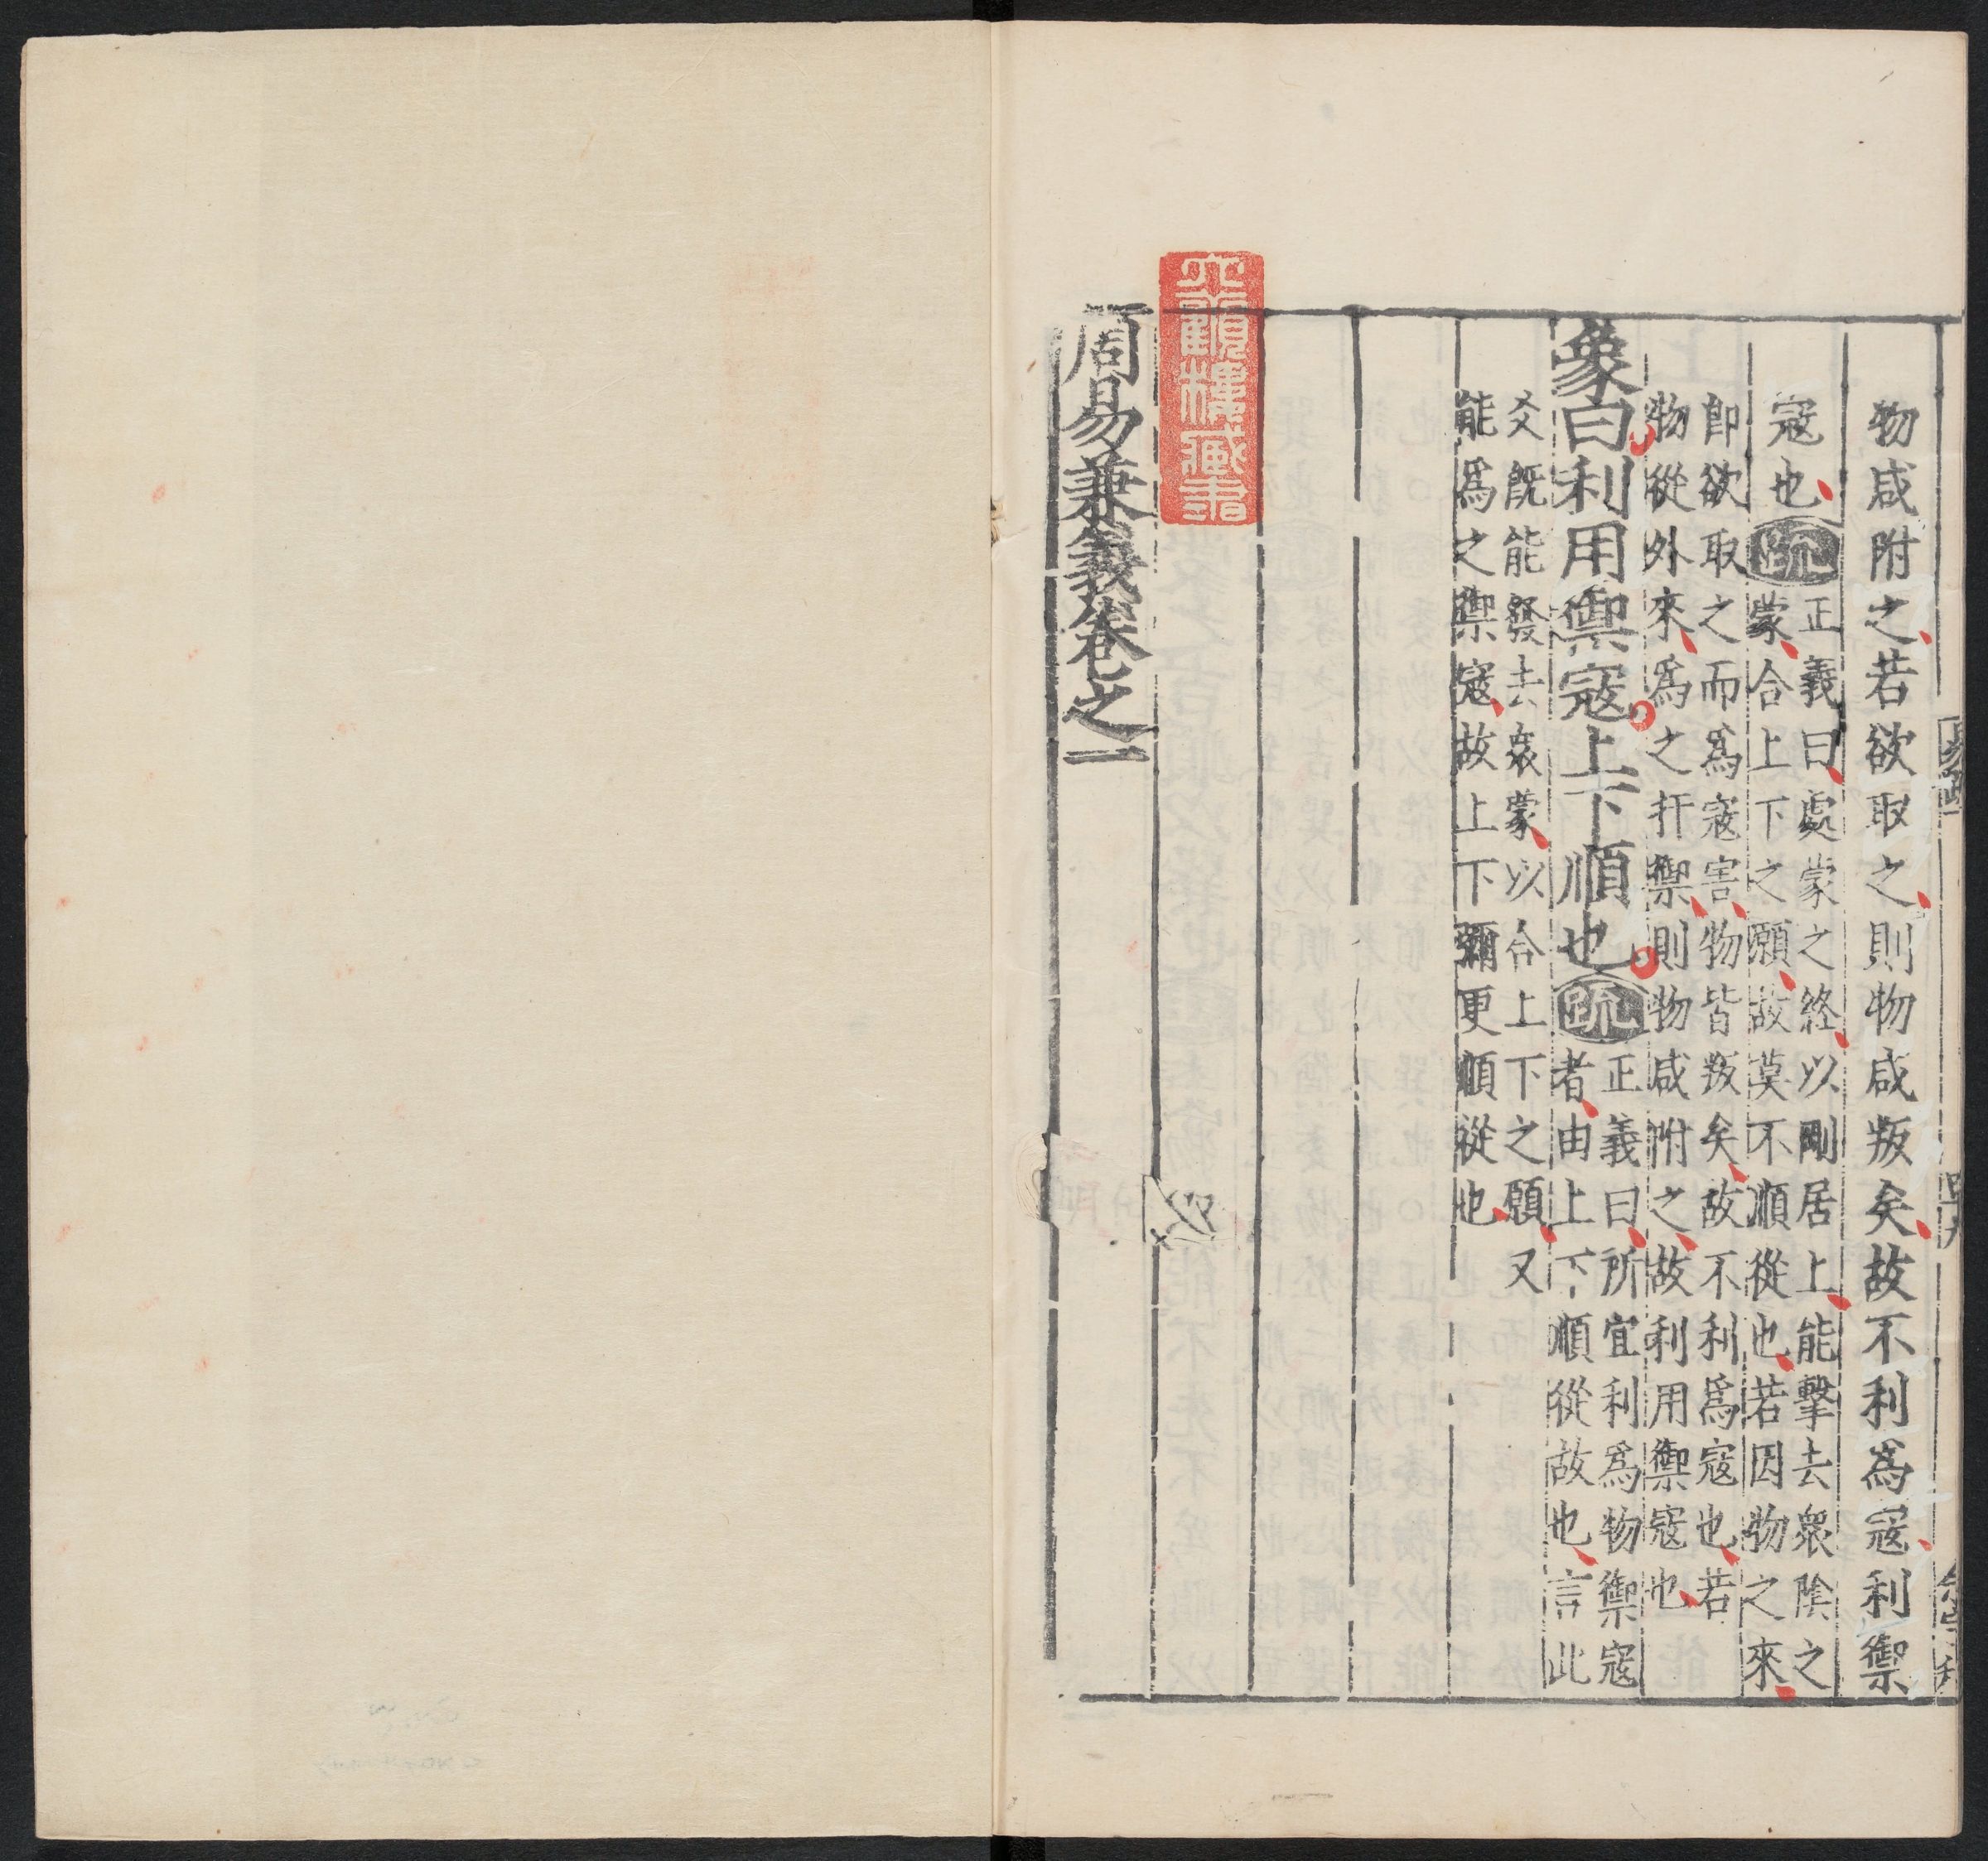 物咸附之若欲取之則物咸叛矣故不利爲寇利禦
寇也
疏
正義曰處蒙之終以剛居上能擊去衆陰之
蒙合上下之願故莫不順從也若因物之來
即欲取之而爲寇害物皆叛矣故不利爲寇也若
物從外來爲之扞禦則物咸附之故利用禦寇也
象曰利用禦寇上下順也
疏
正義曰所宜利爲物禦寇
者由上下順從故也言此
爻既能發去衆蒙以合上下之願又
能爲之禦寇故上下彌更順從也
周易兼義卷之一